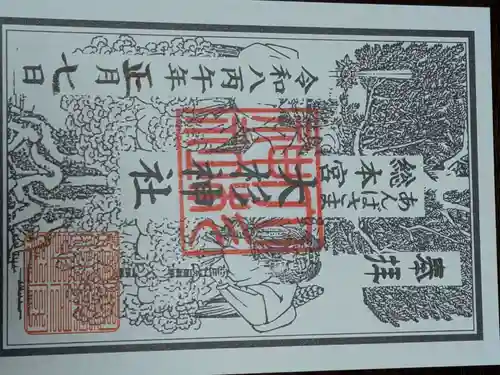 奉拝
総本宮
あんばさま
大杉神社
令和八丙午年
正月七日